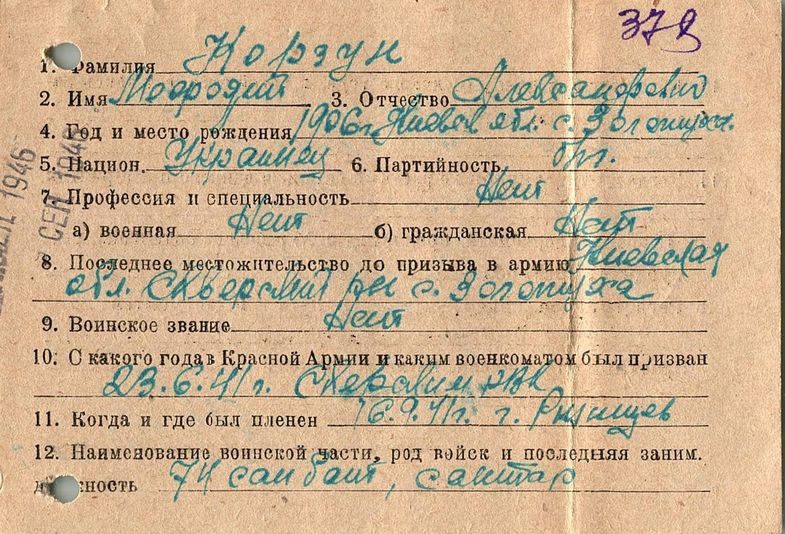 379
1. Фамилия Кордун
2. Имя Мефодий 3. Отчество Александрович
4. Год и место рождения 1906 г. Киевск обл. с. Золотуха.
5. Национ. Украинец 6. Партийность б/п.
7. Профессия и специальность Нет
а) военная Нет б) гражданская Нет
8. Последнее местожительство до призыва в армию Киевская
обл. Сквирский р-н с. Золотуха
9. Воинское звание Нет
10. С какого года в Красной Армии и каким военкоматом был призван
23.6.41 г. РВК
11. Когда и где был пленен 16.9.41 г. г. Ржищев
12. Наименование воинской части, род войск и последняя заним.
д ность 74 сан бат, санитар
СЕН 1946
1946